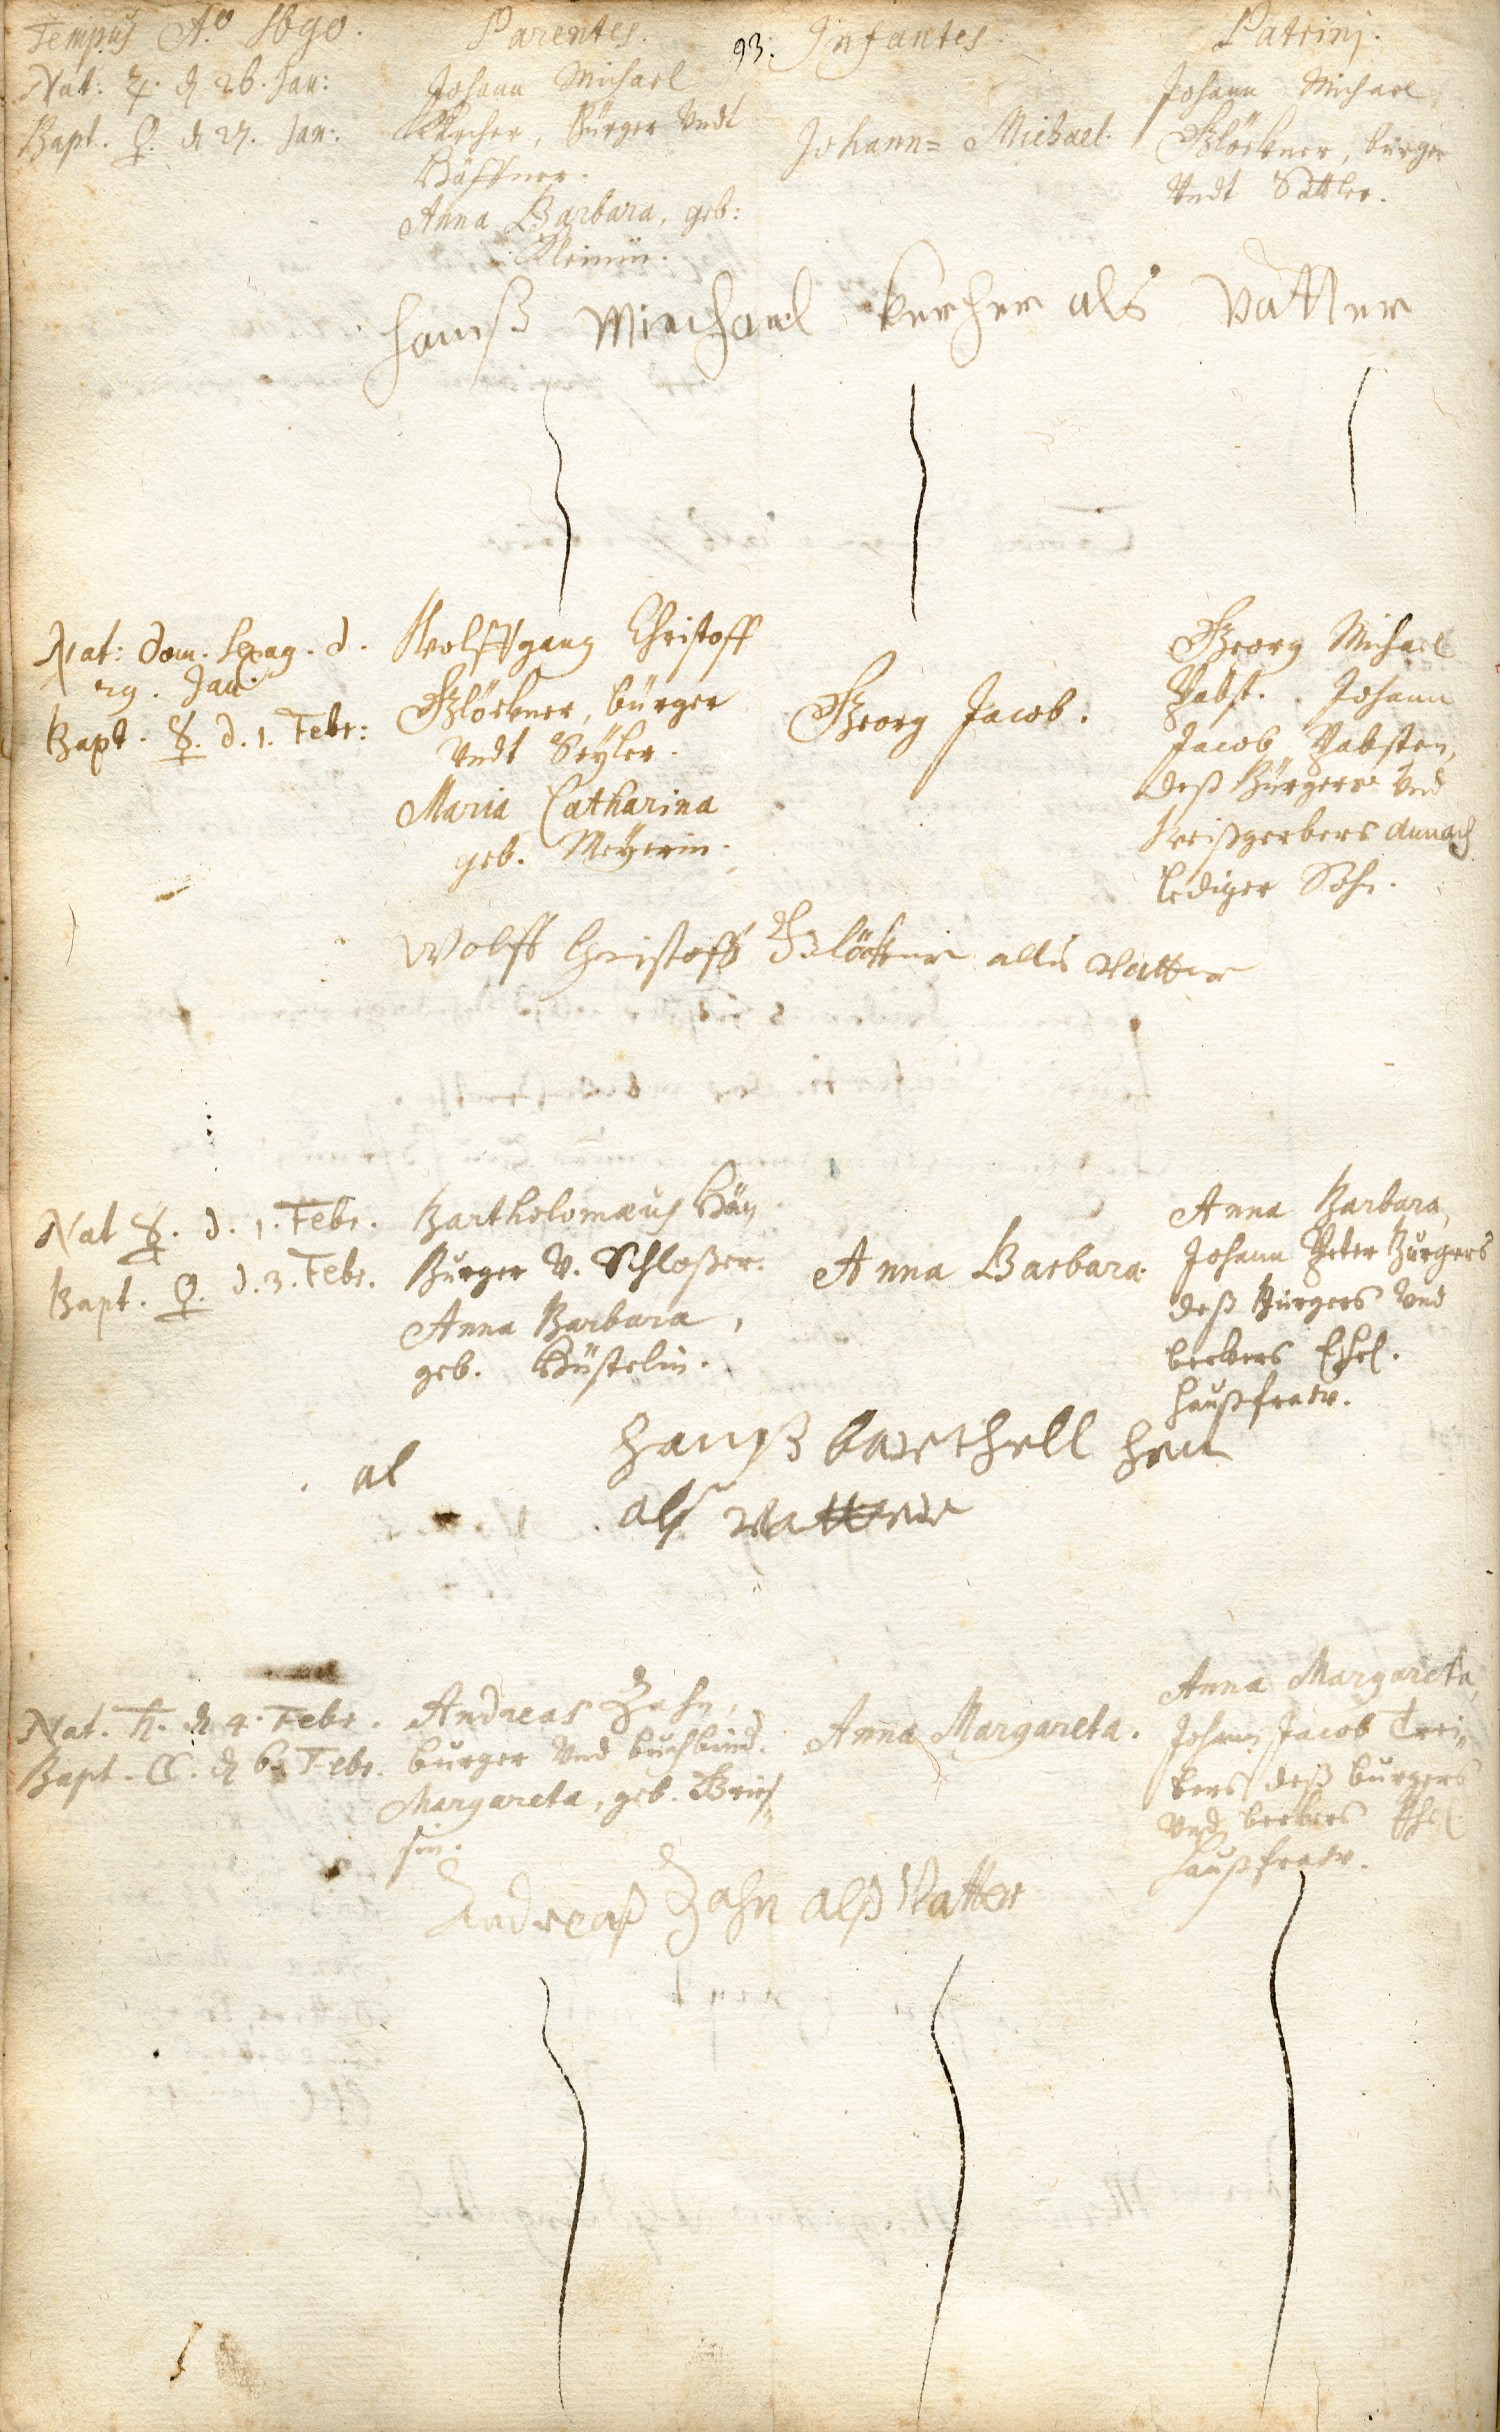 Tempus Aõ 1690. Parentes. 93. Infantes. Patrini.
Nat: ♃. d 26. Jan:
Bapt. ♀. d 27. Jan:
Johann Michael
Kärcher, Bürger Undt
Häffner.
Anna Barbara, geb:
Kleinin.
Johann= Michael.
Johann Michael
Glöckner, bürger
Undt Sattler.
Hanß Miechael Kercher als Vatter
Nat: Dom. Sexag. d.
29. Jan:
Bapt. ☿. d. 1. Febr:
Wolffgang Christoff
Glöckner, bürger
Undt Seyler.
Maria Catharina
geb. Meÿerin.
Georg Jacob.
Georg Michael
Pabst. Johann
Jacob Pabsten,
deß Bürgers Und
Weißgerbers
lediger Sohn.
Wolff Christoff Glöckner allß Vatter
Nat ☿. d. 1. Febr.
Bapt. ♀. d. 3. Febr.
Bartholomæus Häÿ
Burger V. Schloßer.
Anna Barbara,
geb. Küstelin.
Anna Barbara.
Anna Barbara,
Johann Peter Burgers
deß Burgers Und
beckers Ehel.
Haußfraw.
al
Hanß barthell
alß Vatter
Nat. ♄. d 4. Febr.
Bapt. ☾. d 6. Febr.
Andreas Zahn,
burger Und buchbind.
Margareta, geb. Brieß,,
sin.
Anna Margareta.
Anna Margareta,
Johann Jacob Trei,,
bers deß burgers
Und beckers Ehel
Haußfraw.
Andreaß Zahn alß Vatter